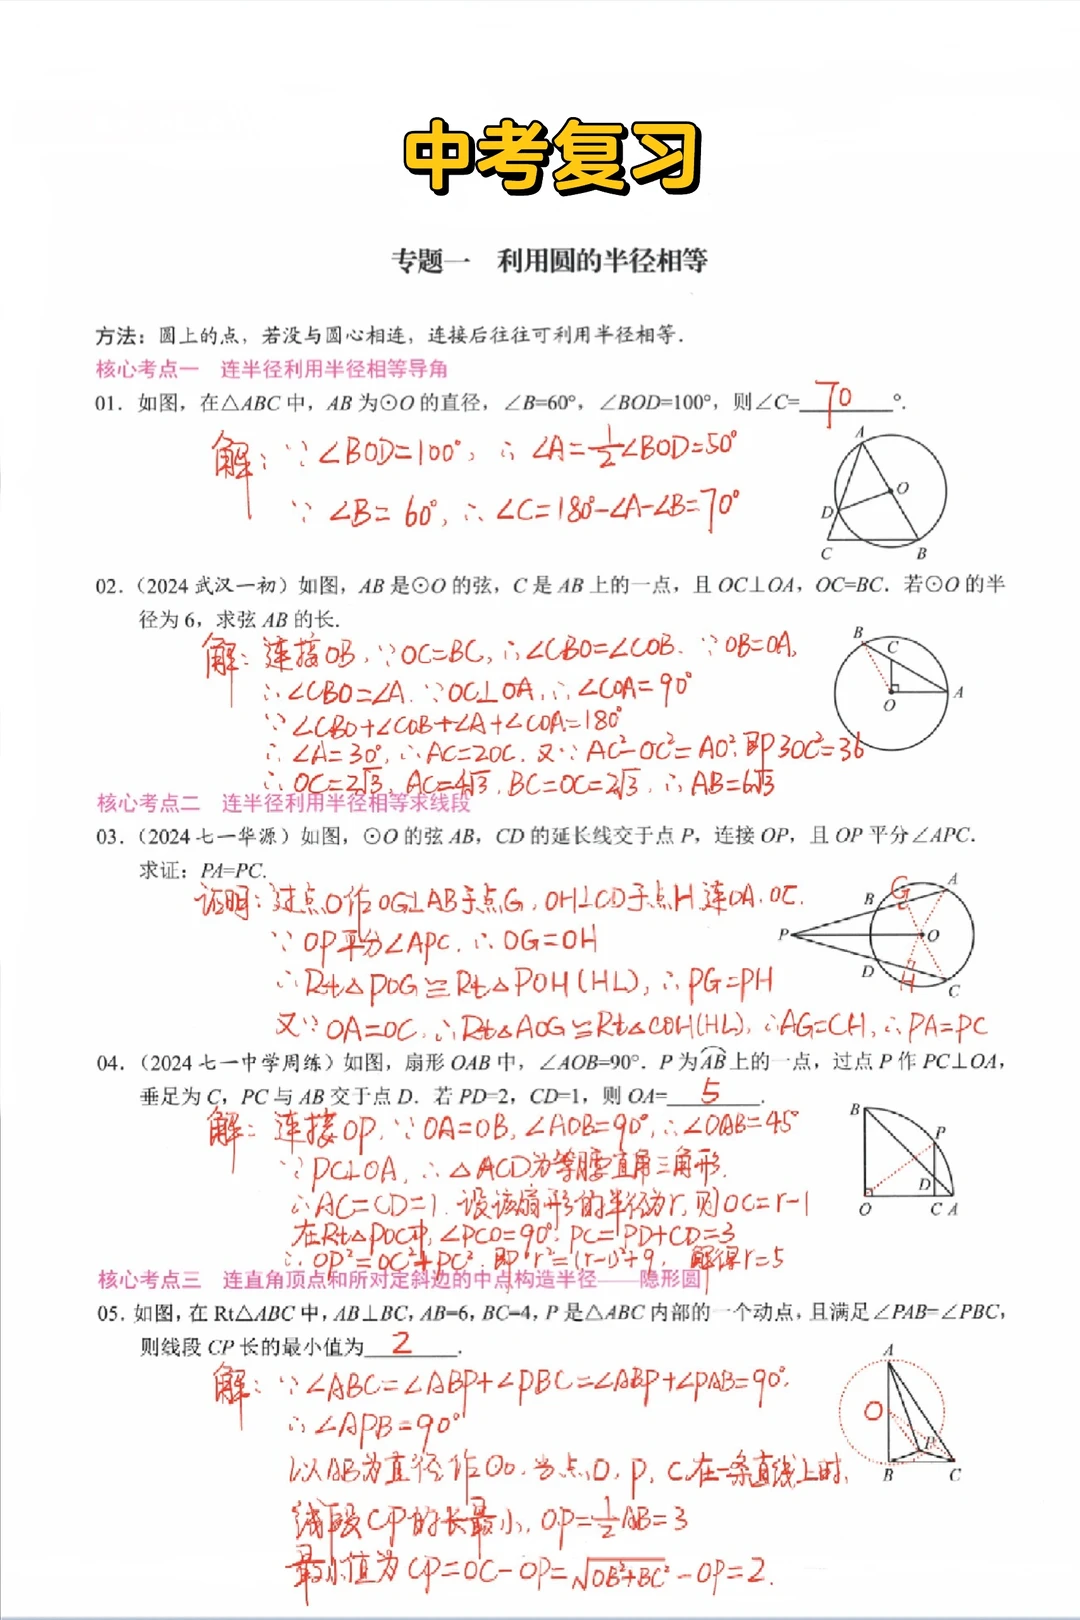 中考复习
专题一 利用圆的半径相等
方法：圆上的点，若没与圆心相连，连接后往往可利用半径相等．
核心考点一 连半径利用半径相等导角
01．如图，在△ABC中，AB为⊙O的直径，∠B=60°，∠BOD=100°，则∠C=70°．
解：∵∠BOD=100°，∴∠A=1/2∠BOD=50°
∵∠B=60°，∴∠C=180°-∠A-∠B=70°
A
O
D
C B
02．（2024武汉一初）如图，AB是⊙O的弦，C是AB上的一点，且OC⊥OA，OC=BC．若⊙O的半
径为6，求弦AB的长．
解：连接OB，∵OC=BC，∴∠CBO=∠COB．∵OB=OA，
∴∠CBO=∠A．∵OC⊥OA，∴∠COA=90°
∵∠CBO+∠COB+∠A+∠COA=180°
∴∠A=30°，∴AC=2OC．又∵AC²-OC²=AO²，即3OC²=36
∴OC=2√3，AC=4√3，BC=OC=2√3，∴AB=6√3
B
C
O A
核心考点二 连半径利用半径相等求线段
03．（2024七一华源）如图，⊙O的弦AB，CD的延长线交于点P，连接OP，且OP平分∠APC．
求证：PA=PC．
证明：过点O作OG⊥AB于点G，OH⊥CD于点H，连OA．OC．
∵OP平分∠APC．∴OG=OH
∴Rt△POG≌Rt△POH(HL)，∴PG=PH
又∵OA=OC，∴Rt△AOG≌Rt△COH(HL)，∴AG=CH，∴PA=PC
G A
B
P O
D H C
04．（2024七一中学周练）如图，扇形OAB中，∠AOB=90°．P为AB上的一点，过点P作PC⊥OA，
垂足为C，PC与AB交于点D．若PD=2，CD=1，则OA=5．
解：连接OP，∵OA=OB，∠AOB=90°，∴∠OAB=45°
∵PC⊥OA，∴△ACD为等腰直角三角形．
∴AC=CD=1．设该扇形的半径为r，则OC=r-1
在Rt△POC中，∠PCO=90°．PC=PD+CD=3
∴OP²=OC²+PC²．即r²=(r-1)²+9，解得r=5
B
P
D
O C A
核心考点三 连直角顶点和所对定斜边的中点构造半径——隐形圆
05．如图，在Rt△ABC中，AB⊥BC，AB=6，BC=4，P是△ABC内部的一个动点，且满足∠PAB=∠PBC，
则线段CP长的最小值为2．
解：∵∠ABC=∠ABP+∠PBC=∠ABP+∠PAB=90°，
∴∠APB=90°
以AB为直径作⊙O．当点O，P，C在一条直线上时，
线段CP的长最小，OP=1/2AB=3
最小值为CP=OC-OP=√OB²+BC²-OP=2．
A
O
P
B C